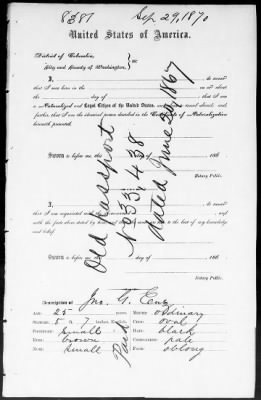 8387 Sep 29, 1870
United States of America.
District of Columbia,
City and County of Washington,
I, do swear
that I was born in the on or about
the day of ; that I am
a Naturalized and Loyal Citizen of the United States
further, that I am the identical person described in the Certificate of Naturalization
herewith presented.
Sworn to before me, this day of 186
Notary Public.
I, do swear
that I am acquainted with the
with the facts above stated to the best of my knowledge
and belief.
Sworn to before me, this day of 186
Notary Public.
Old Passport
No 33,438
dated June 20, 1867
Paid
Description of Jno. G.
Age: 25 Mouth: ordinary
Stature: 5 a 7 inches, English. Chin: oval
small Hair: black
Nose: brown Complexion: pale
small oblong